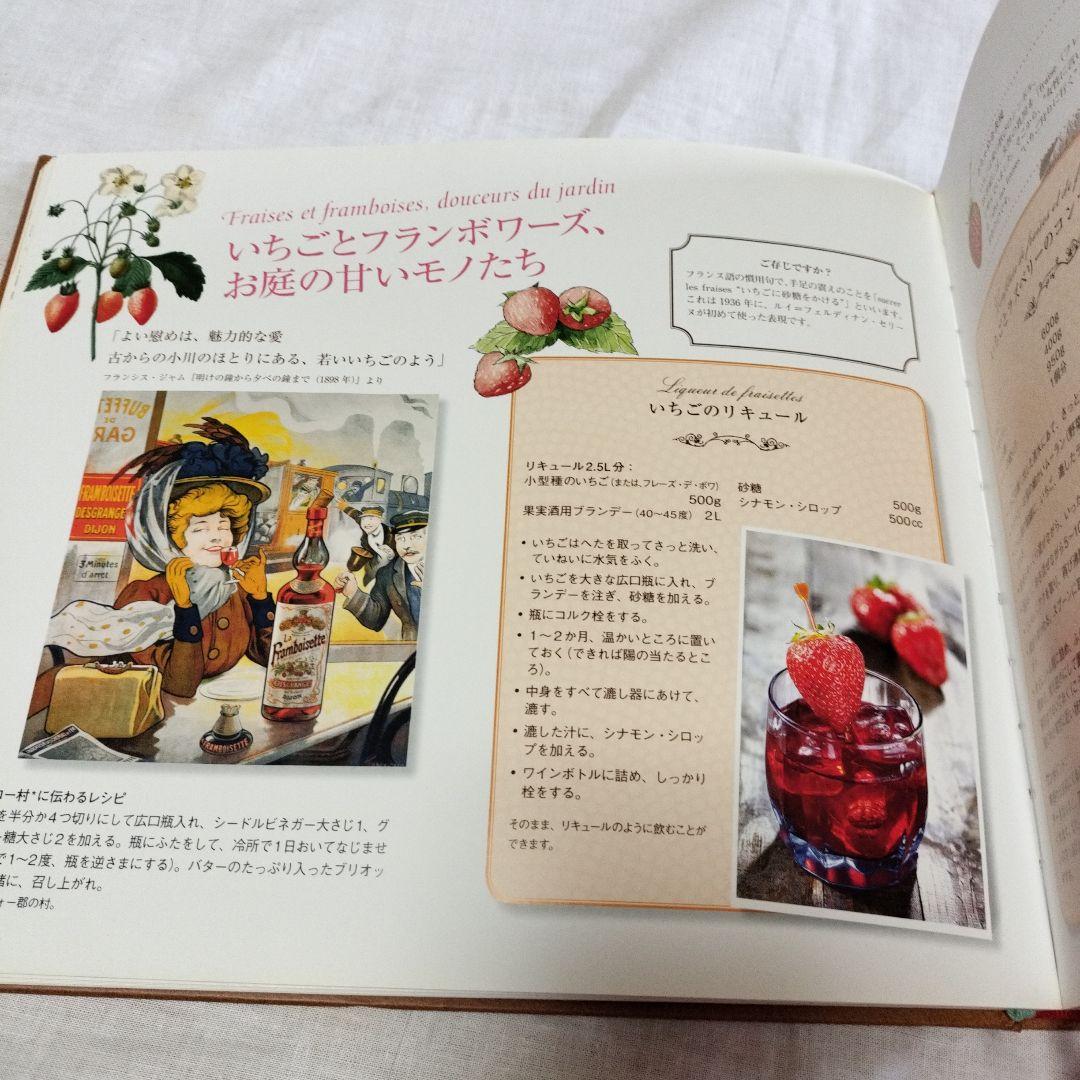 Fraises et framboises, douceurs du jardin
いちごとフランボワーズ、
お庭の甘いモノたち
「よい慰めは、魅力的な愛
古からの小川のほとりにある、若いいちごのよう」
フランシス・ジャム『明けの鐘から夕べの鐘まで（1898年）』より
BUFFET
DE
GAR
FRAMBOISETTE
DESGRANGE
DIJON
3 Minutes
d'arret
La
Framboisette
DESGRANGE
FRAMBOISETTE
ロー村*に伝わるレシピ
を半分か4つ切りにして広口瓶入れ、シードルビネガー大さじ1、グ
糖大さじ2を加える。瓶にふたをして、冷所で1日おいてなじませ
で1〜2度、瓶を逆さまにする）。バターのたっぷり入ったブリオッ
緒に、召し上がれ。
ォー郡の村。
ご存じですか？
フランス語の慣用句で、手足の震えのことを「sucrer
les fraises “いちごに砂糖をかける”」といいます。
これは1936年に、ルイ＝フェルディナン・セリー
ヌが初めて使った表現です。
Liqueur de fraisettes
いちごのリキュール
リキュール2.5L分：
小型種のいちご（または、フレーズ・デ・ボワ）
500g
果実酒用ブランデー（40〜45度） 2L
砂糖 500g
シナモン・シロップ 500cc
• いちごはへたを取ってさっと洗い、
ていねいに水気をふく。
• いちごを大きな広口瓶に入れ、ブ
ランデーを注ぎ、砂糖を加える。
• 瓶にコルク栓をする。
• 1〜2か月、温かいところに置い
ておく（できれば陽の当たるとこ
ろ）。
• 中身をすべて漉し器にあけて、
漉す。
• 漉した汁に、シナモン・シロッ
プを加える。
• ワインボトルに詰め、しっかり
栓をする。
そのまま、リキュールのように飲むことが
できます。
600g
400g
950g
1個分